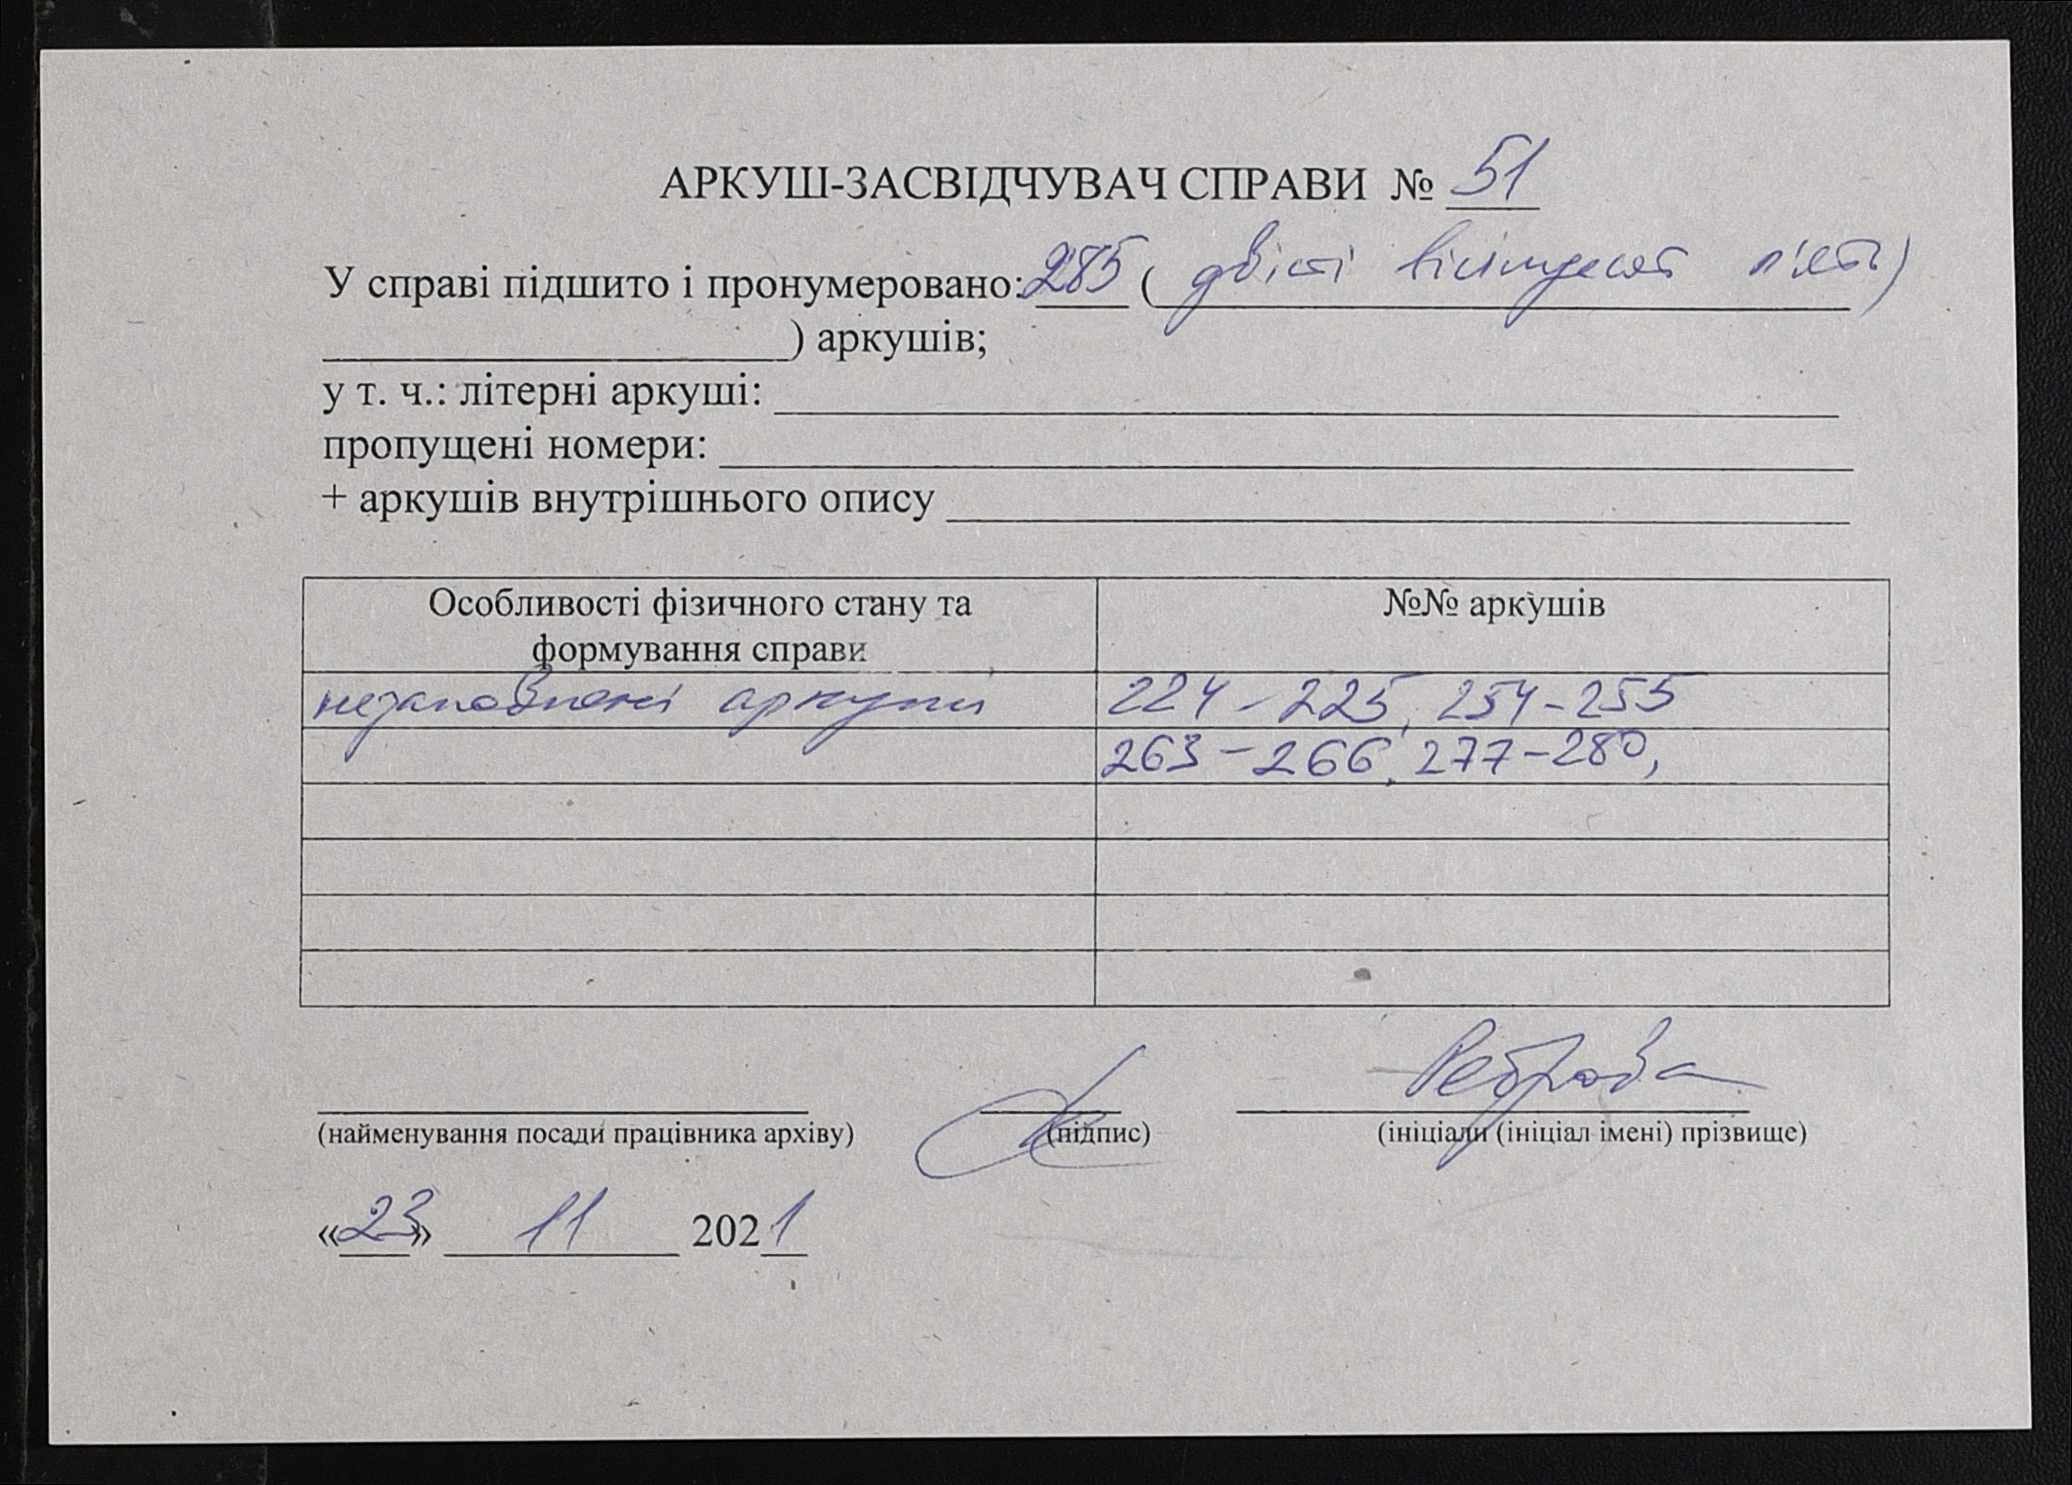 АРКУШ-ЗАСВІДЧУВАЧ СПРАВИ № 51
У справі підшито і пронумеровано: 285 ( двісті вісімдесят п'ять)
) аркушів;
у т. ч.: літерні аркуші:
пропущені номери:
+ аркушів внутрішнього опису
Особливості фізичного стану та №№ аркушів
формування справи
незаповнені аркуши 224-225, 254-255
263-266, 277-280,
Реброва
(найменування посади працівника архіву) (підпис) (ініціали (ініціал імені) прізвище)
«23» 11 2021